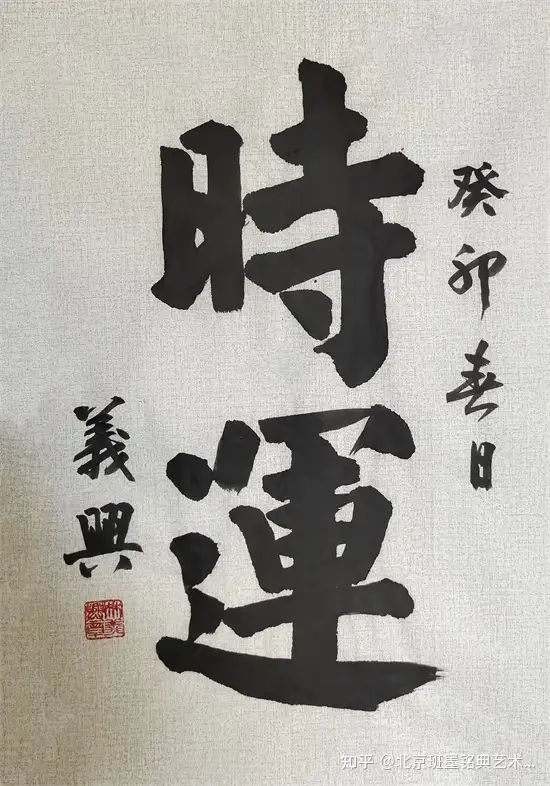 癸卯春日
時運
義興
知乎 @北京班墨铭典艺术...